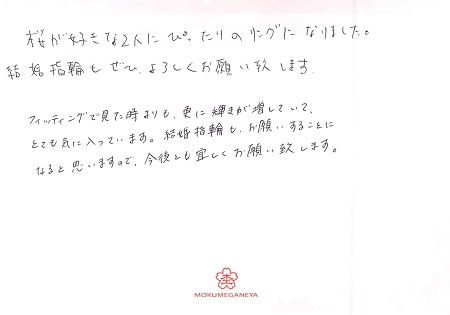 桜が好きな2人にぴったりのリングになりました。
結婚指輪もぜひ、よろしくお願い致します。
フィッティングで見た時よりも、更に輝きが増していて、
とても気に入っています。結婚指輪も、お願いすることに
なると思いますので、今後とも宜しくお願い致します。
MOKUMEGANEYA